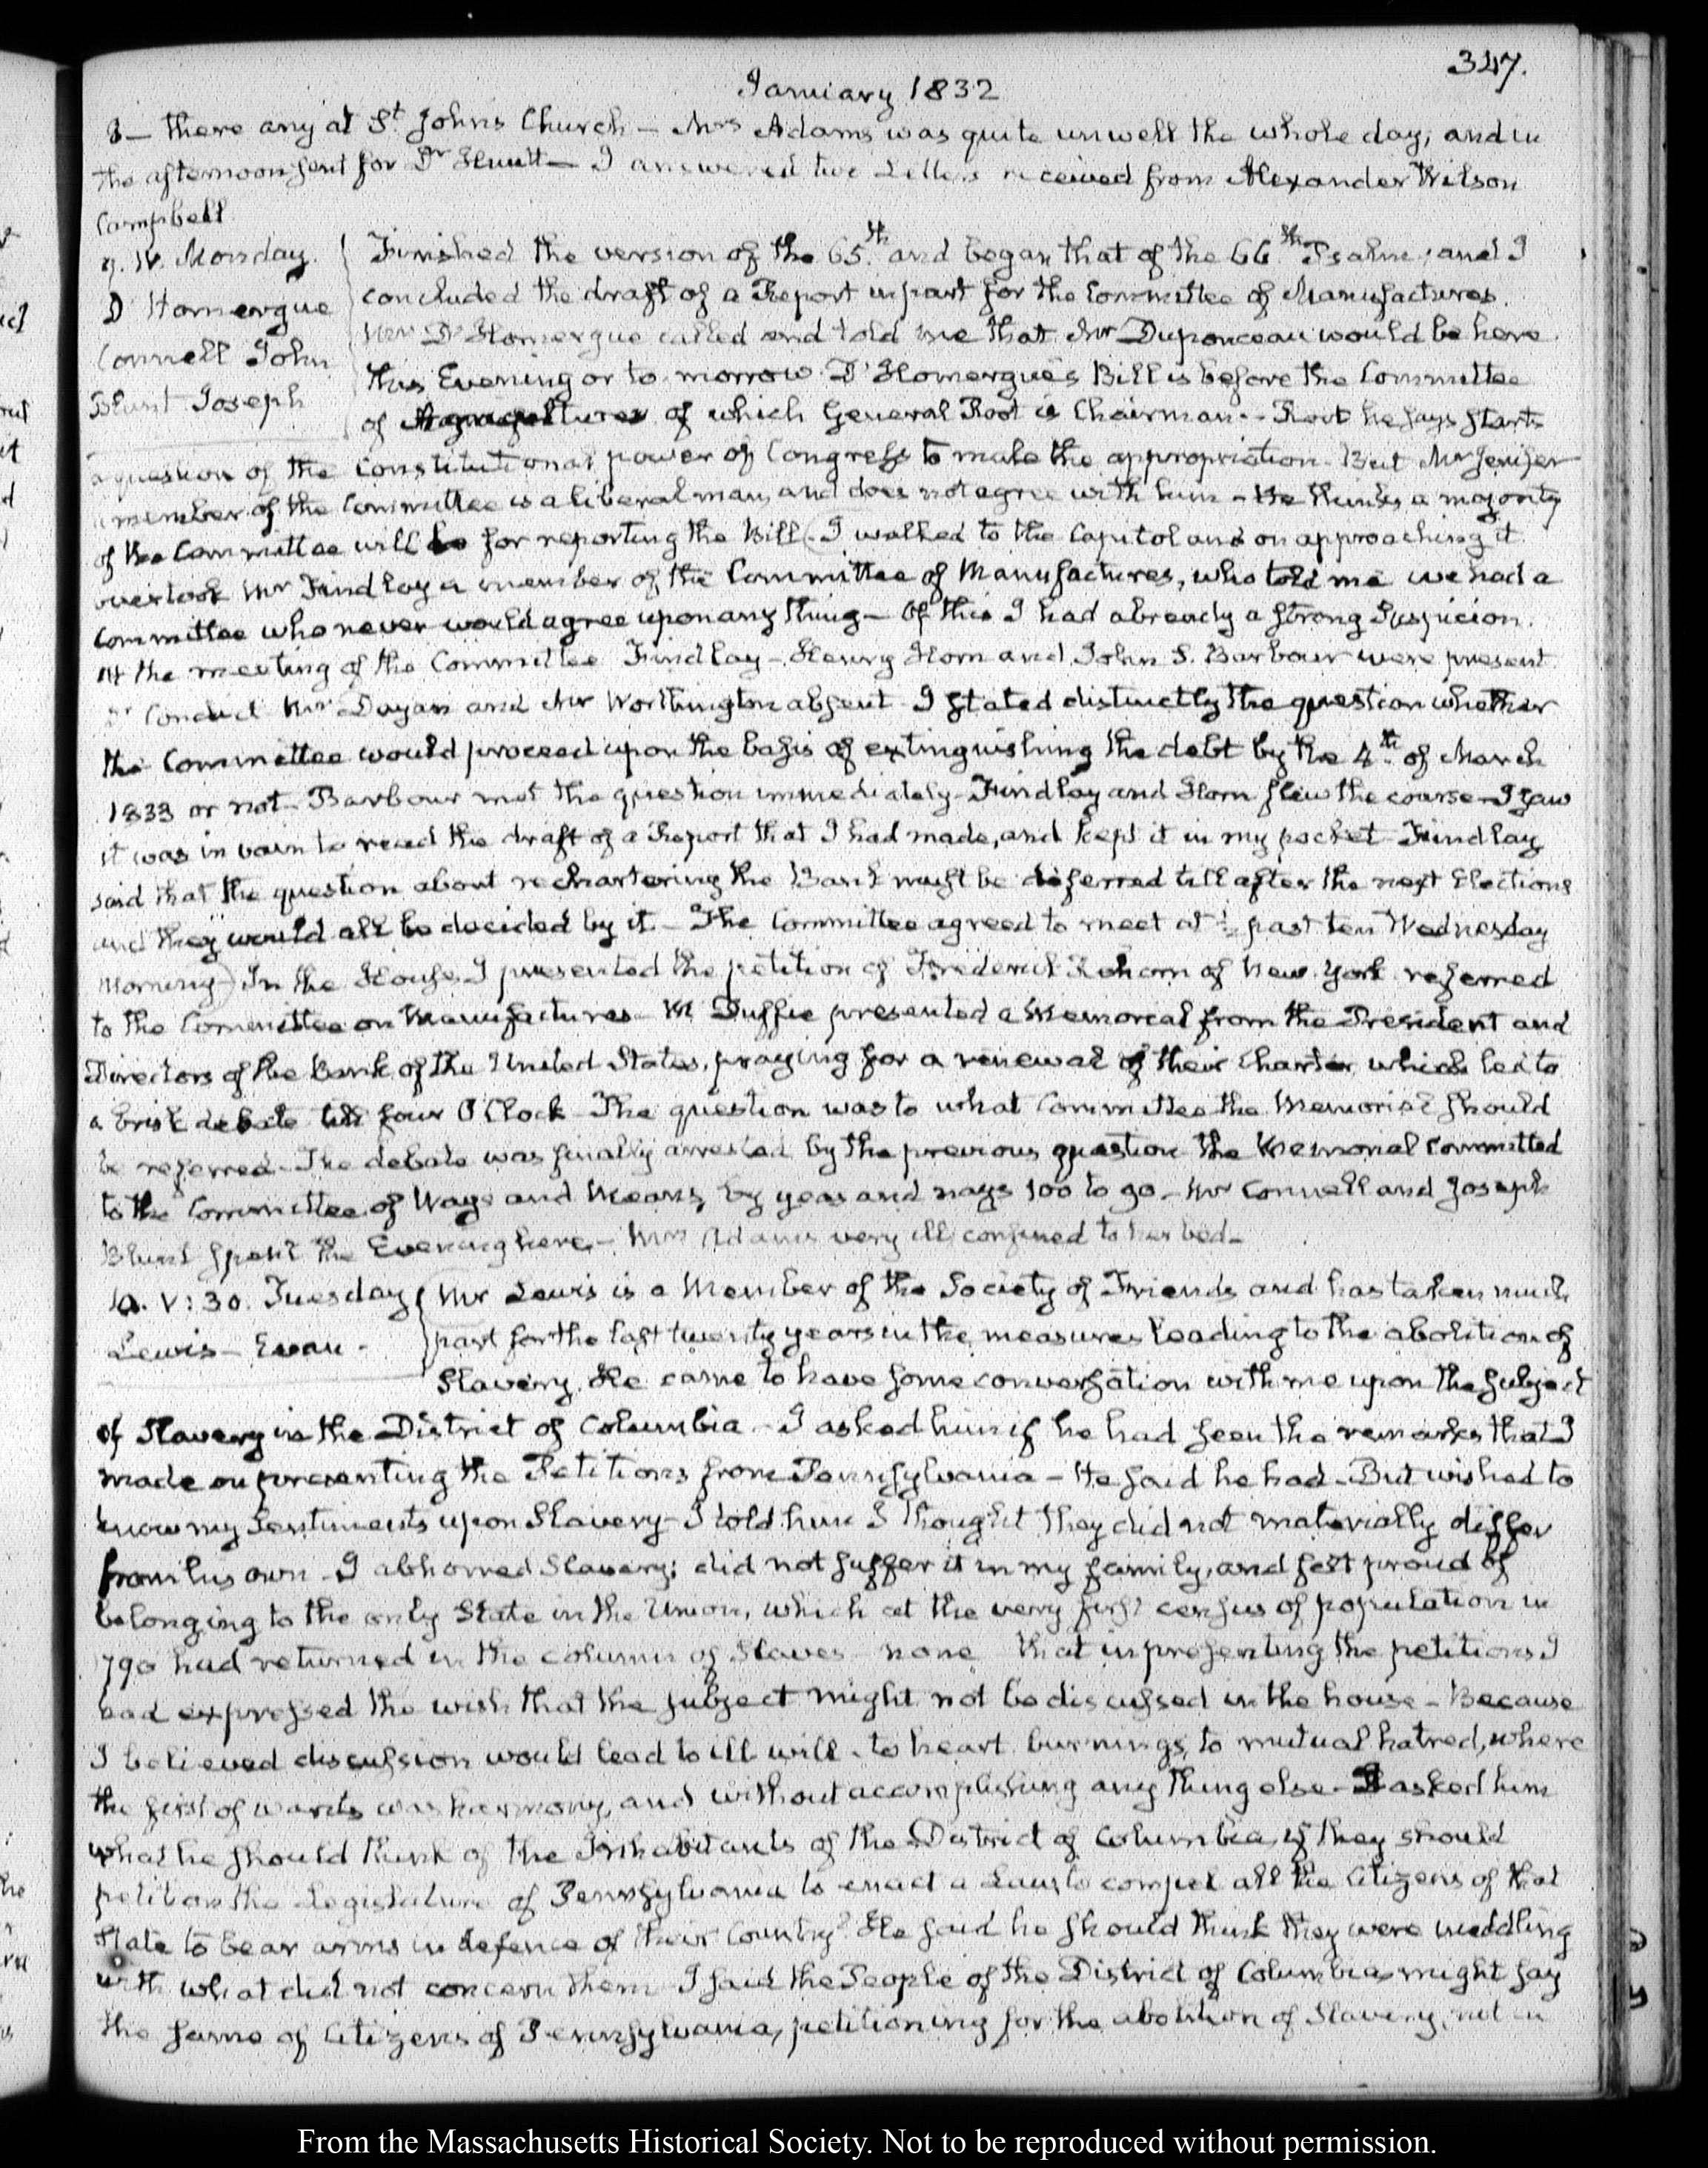 347.
January 1832
8— there any at St. Johns Church — Mrs Adams was quite unwell the whole day, and in
the afternoon sent for Dr Huntt — I answered two Letters received from Alexander Wilson
Campbell
9. IV. Monday.
D'Homergue
Connell John
Blunt Joseph
Finished the version of the 65th. and began that of the 66th. Psalm; and I
concluded the draft of a Report in part for the Committee of Manufactures.
Mr D'Homergue called and told me that Mr Duponceau would be here
this Evening or to-morrow D'Homergue's Bill is before the Committee
of Agriculture of which General Root is Chairman — Root he says starts
a question of the Constitutional power of Congress to make the appropriation. But Mr Jenifer
a member of the Committee is a liberal man, and does not agree with him — He thinks a majority
of the Committee will be for reporting the Bill. I walked to the Capitol and on approaching it
overtook Mr Findlay a member of the Committee of Manufactures, who told me we had a
Committee who never would agree upon any thing — Of this I had already a strong Suspicion.
At the meeting of the Committee Findlay — Henry Horn and John S. Barbour were present
Dr Condict Mr Dayan and Mr Worthington absent I stated distinctly the question whether
the Committee would proceed upon the basis of extinguishing the debt by the 4th. of March
1833 or not — Barbour met the question immediately — Findlay and Horn flew the course — I saw
it was in vain to read the draft of a Report that I had made, and kept it in my pocket Findlay
said that the question about rechartering the Bank must be deferred till after the next Elections
and they would all be decided by it. — The Committee agreed to meet at ½ past ten Wednesday
Morning) In the House I presented the petition of Frederick of New-York referred
to the Committee on Manufactures — Mc Duffie presented a Memorial from the President and
Directors of the Bank of the United States, praying for a renewal of their Charter, which led to
a brisk debate till four O'Clock The question was to what Committee the Memorial should
be referred — The debate was finally arrested by the previous question the Memorial Committed
to the Committee of Ways and Means, by yeas and nays 100 to 90 — Mr Connell and Joseph
Blunt spent the Evening here — Mrs Adams very ill confined to her bed —
10. V: 30. Tuesday
Lewis — Evan —
Mr Lewis is a Member of the Society of Friends and has taken much
part for the last twenty years in the measures leading to the abolition of
Slavery. He came to have some conversation with me upon the subject
of Slavery in the District of Columbia — I asked him if he had seen the remarks that I
made on presenting the Petitions from Pennsylvania — He said he had — But wished to
know my Sentiments upon Slavery — I told him I thought they did not materially differ
from his own — I abhorred Slavery; did not suffer it in my family, and felt proud of
belonging to the only State in the Union, which at the very first census of population in
1790 had returned in the column of Slaves — none that in presenting the petitions I
had expressed the wish that the subject might not be discussed in the house — Because
I believed discussion would lead to ill will — to heart burnings, to mutual hatred, where
the first of wants was harmony, and without accomplishing any thing else — I asked him
what he should think of the Inhabitants of the District of Columbia, if they should
petition the Legislature of Pennsylvania to enact a Law to compel all the Citizens of that
State to bear arms in defence of their Country? He said he should think they were meddling
with what did not concern them I said the People of the District of Columbia might say
the same of Citizens of Pennsylvania, petitioning for the abolition of Slavery, not in
From the Massachusetts Historical Society. Not to be reproduced without permission.